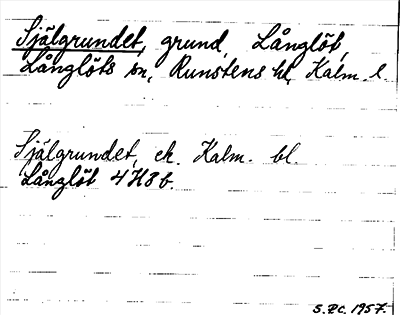 Själgrundet, grund, Långlöt,
Långlöts sn, Runstens hd, Kalm. l.
Själgrundet, ek. Kalm. bl.
Långlöt 4H8b.
S.PC. 1957.